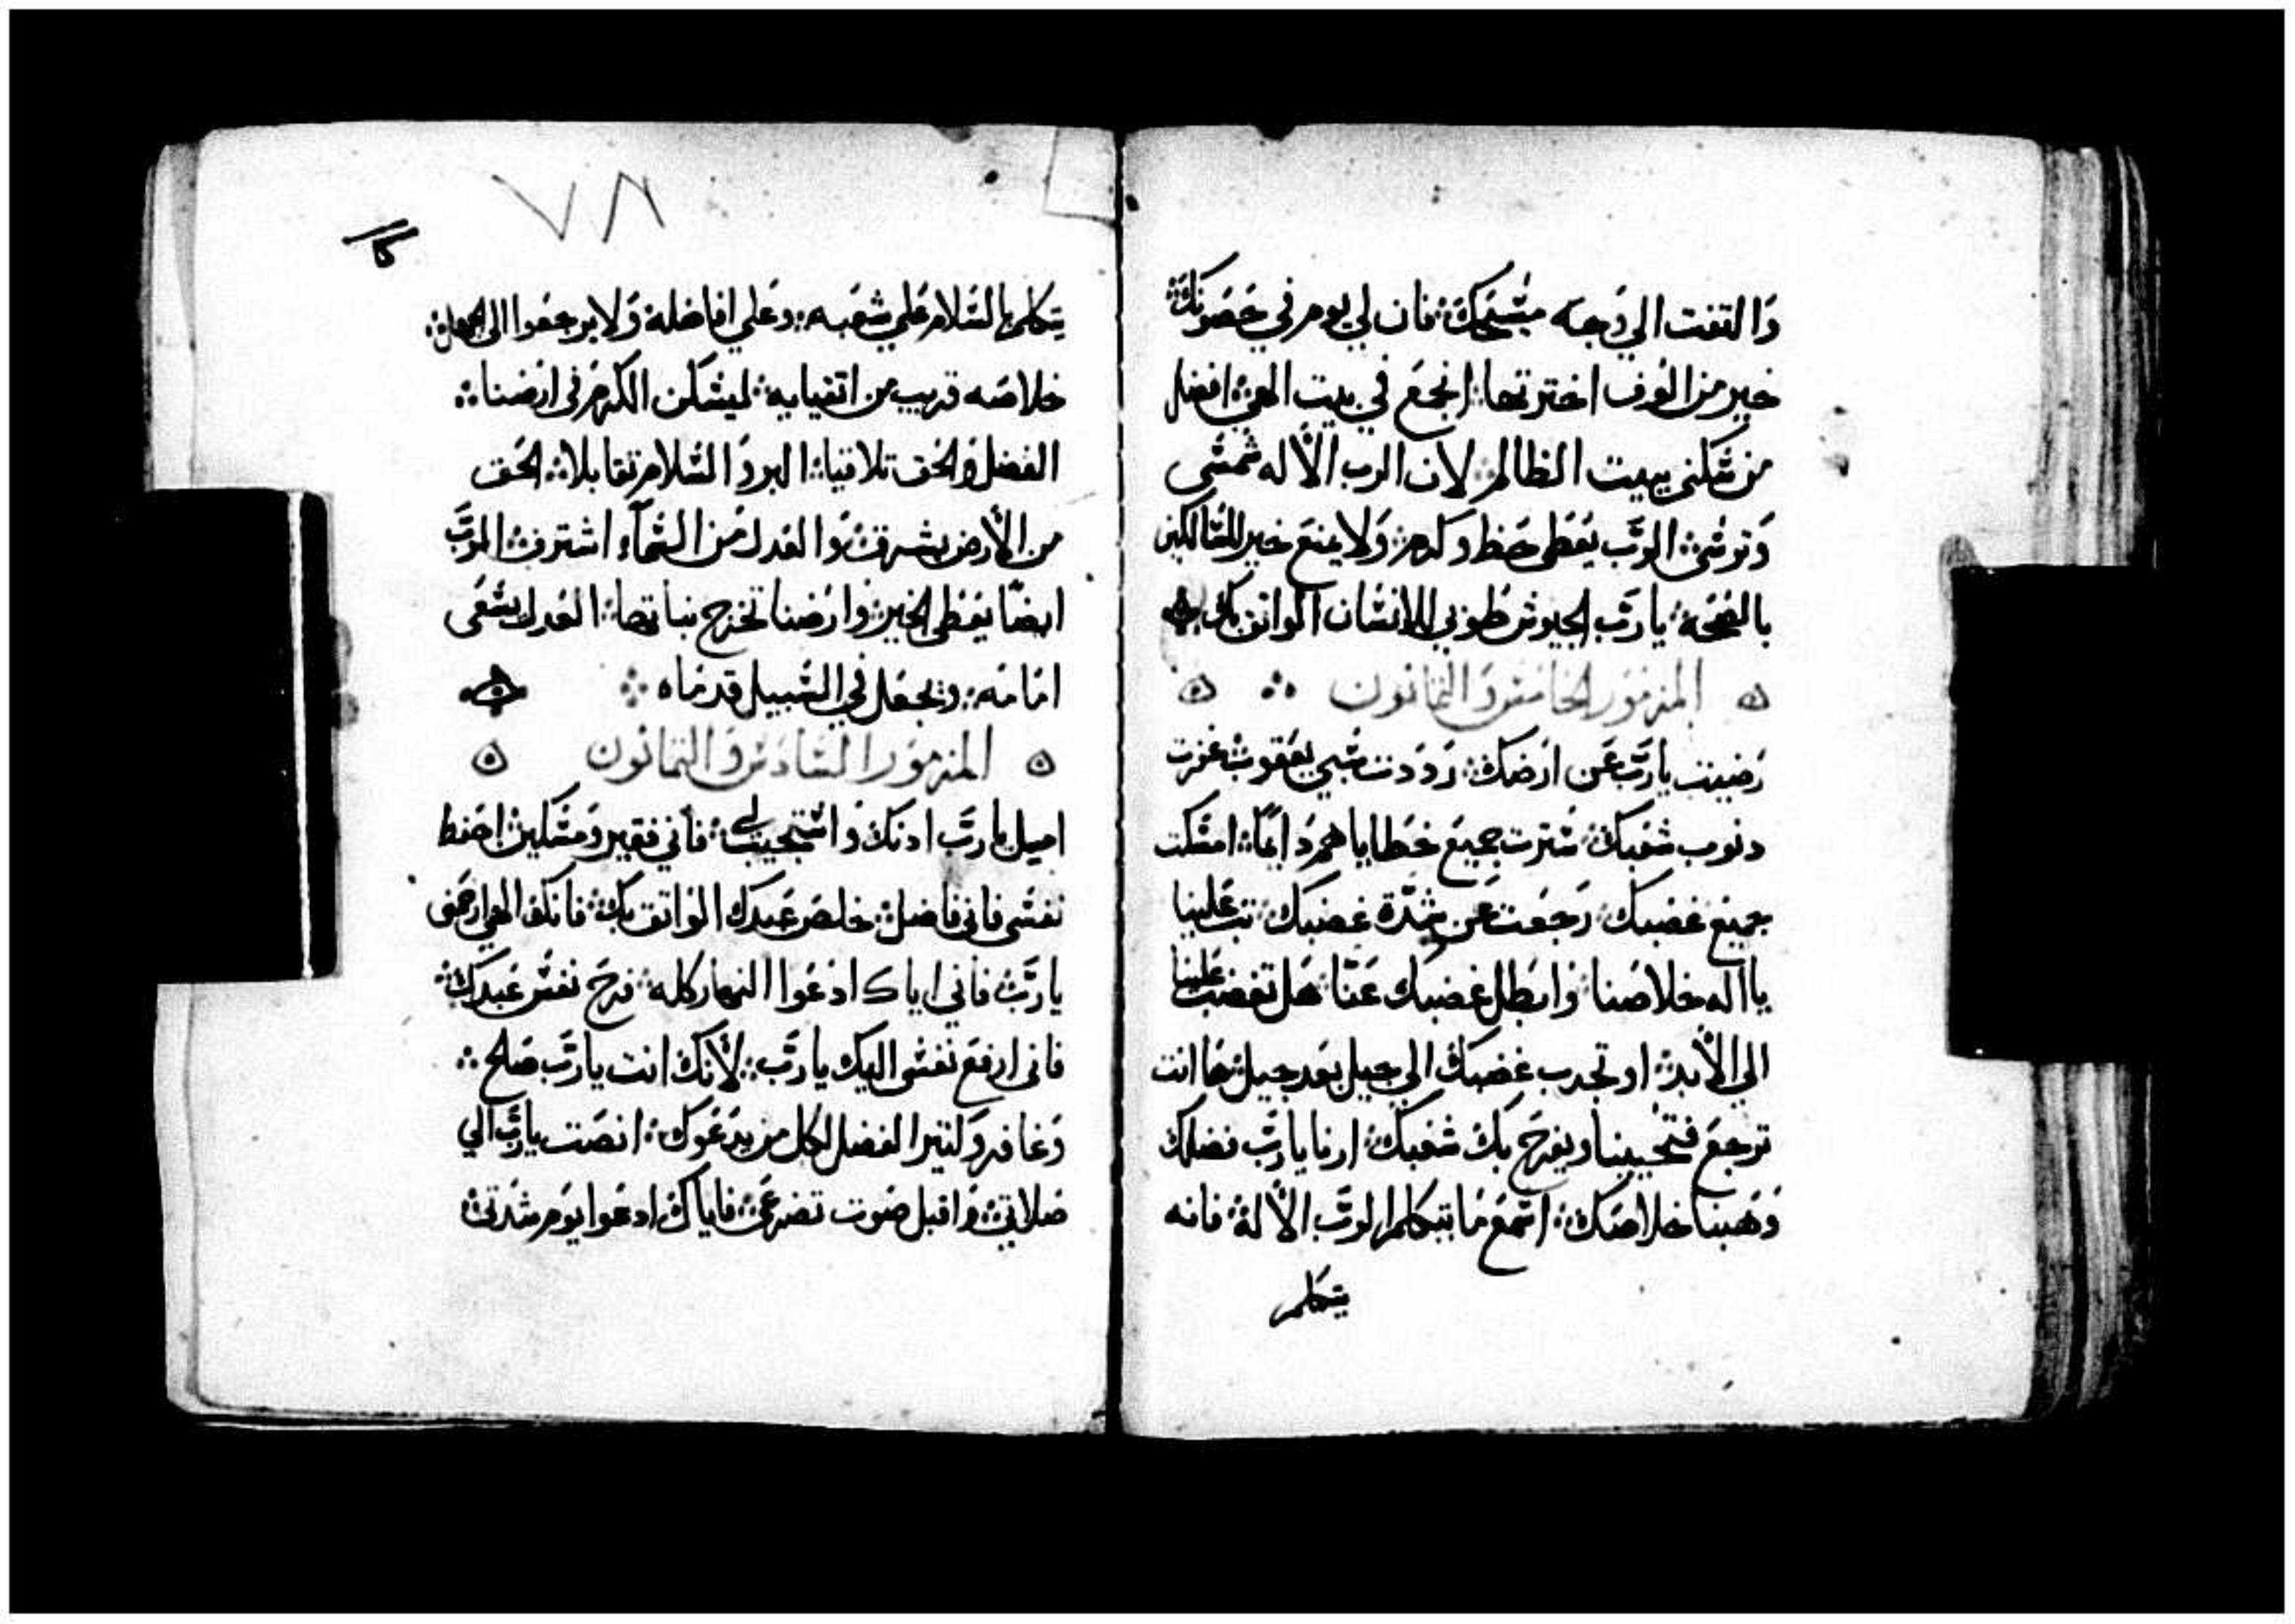 وَالتفت الي وَجه مسَيحكَ܀ فان لي يوم في حَصَونكَ܀
خير من الوف اخترتها܀ انجعَ في بيت الهيَ܀ افضل
من سَكني ببيت الظالم܀ لان الرب الأله شمسَي
وَترسَي܀ الرَّب يعَطي حَظ وكرم܀ وَلا يمنعَ خير للسَالكين
بالصَحَة܀ يا رَّب الجيوش طوبي للانسَان الواثق بك܀
المزمَور الخامسَ وَالثمانون
رَضيت يا رَّب عَن ارَضك܀ رَدَدت سَبي يعَقوب܀ غفرت
دنوب شعَبكَ܀ سَترت جميعَ خَطاياهم دَايمًا܀ امسَكت
جميعَ غضبك܀ رَجعَت عَن شدّة غضبك܀ تب عَلينا
يا اله خلاصَنا܀ وَابطَل غضبك عَنّا܀ هَل تغضب عَلينا
الي الأبد܀ او تجدب غضبكَ الي جيل بعَد جيل܀ هَا انت
ترجعَ فتحَيينا ويفرحَ بكَ شعَبكَ܀ ارنا يا رَّب فضلك
وَهَبنا خلاصَكَ܀ اسَمعَ مَا يتكلم الرَّب الأله܀ فانه
يتكلم
٧٨
يتكلم بالسَلام عَلي شعَبه܀ وَعَلي افاضله وَلا يرجعَوا الي الجهل܀
خلاصَه قريب من اتقيايه܀ ليسَكن الكرمَ في ارَضنا܀
الفضل وَالحَق تلاقيا܀ البر وَالسَلام تقابلا܀ الحَق
من الأرض يشرق܀ وَالعَدل مَن السَمآء اشترف܀ الرَّب
ايضًا يعَطي الخير܀ وارَضنا تخرج نباتها܀ العَدل يسَعَي
امَامَه܀ ويجعَل في السَبيل قدمَاه܀
المزمَور السَادَسَ وَالثمانون
اميل يا رَّب ادنكَ وَاسَتجيب لي܀ فأني فقير وَمسَكين܀ احَفظ
نفسَي فاني فاضل܀ خلصَ عَبدك الوَاثق بك܀ فانكَ الهي ارحَمني
يا رَّب܀ فاني اياك ادعَوا النهار كله܀ فرحَ نفسَ عَبدكَ܀
فاني ارفعَ نفسَي اليك يا رَّب܀ لأنكَ انت يا رَّب صَالح܀
وَغافر وَكتير الفضل لكل من يدَعَوك܀ انصَت يا رَّب الي
صَلاتي܀ وَاقبل صَوت تضرعَي܀ فاياكَ ادعَوا يوَم شدَتي܀